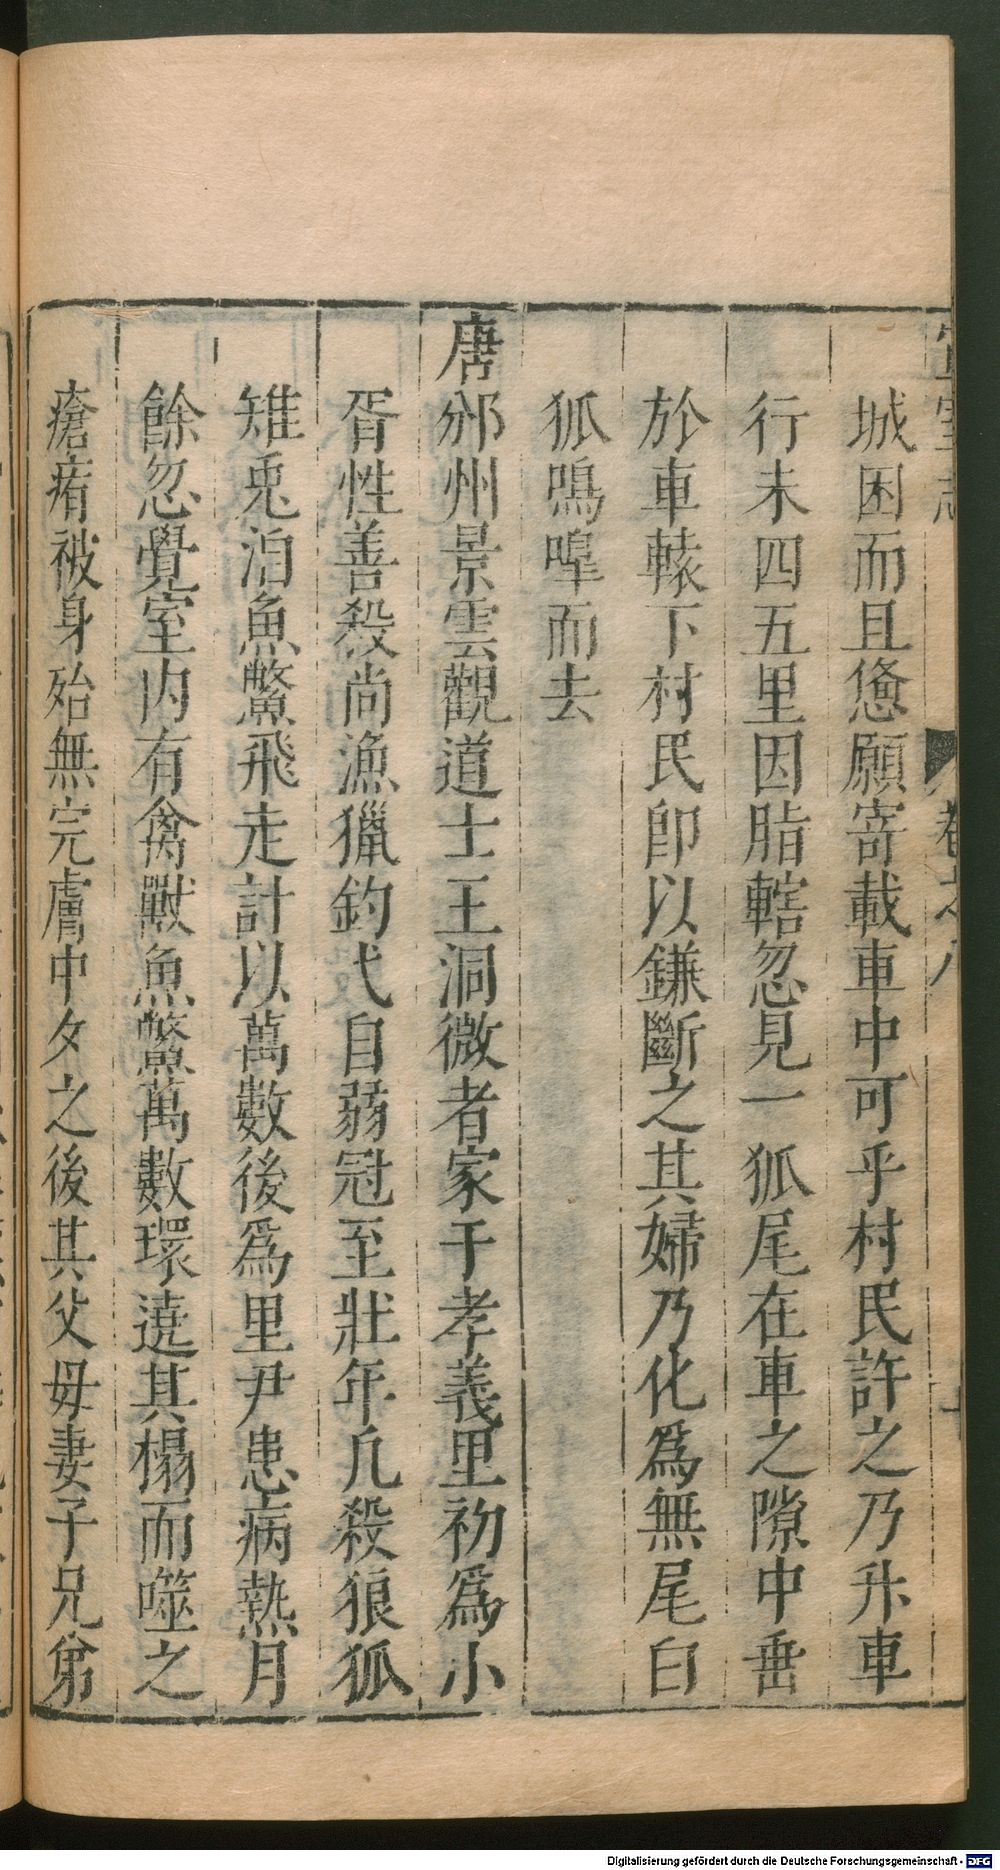 城困而且憊願寄載車中可乎村民許之乃升車
行未四五里因脂轄忽見一狐尾在車之隙中垂
於車轅下村民卽以鎌斷之其婦乃化爲無尾白
狐鳴嘷而去
唐邠州景雲觀道士王洞微者家于孝義里初爲小
胥性善殺尚漁獵釣弋自弱冠至壯年凢殺狼狐
雉兎洎魚鱉飛走計以萬數後爲里尹患病熱月
餘忽覺室内有禽獸魚鱉萬數環遶其榻而噬之
瘡痏被身殆無完膚中夕之後其父母妻子兄弟
Digitalisierung gefördert durch die Deutsche Forschungsgemeinschaft - DFG